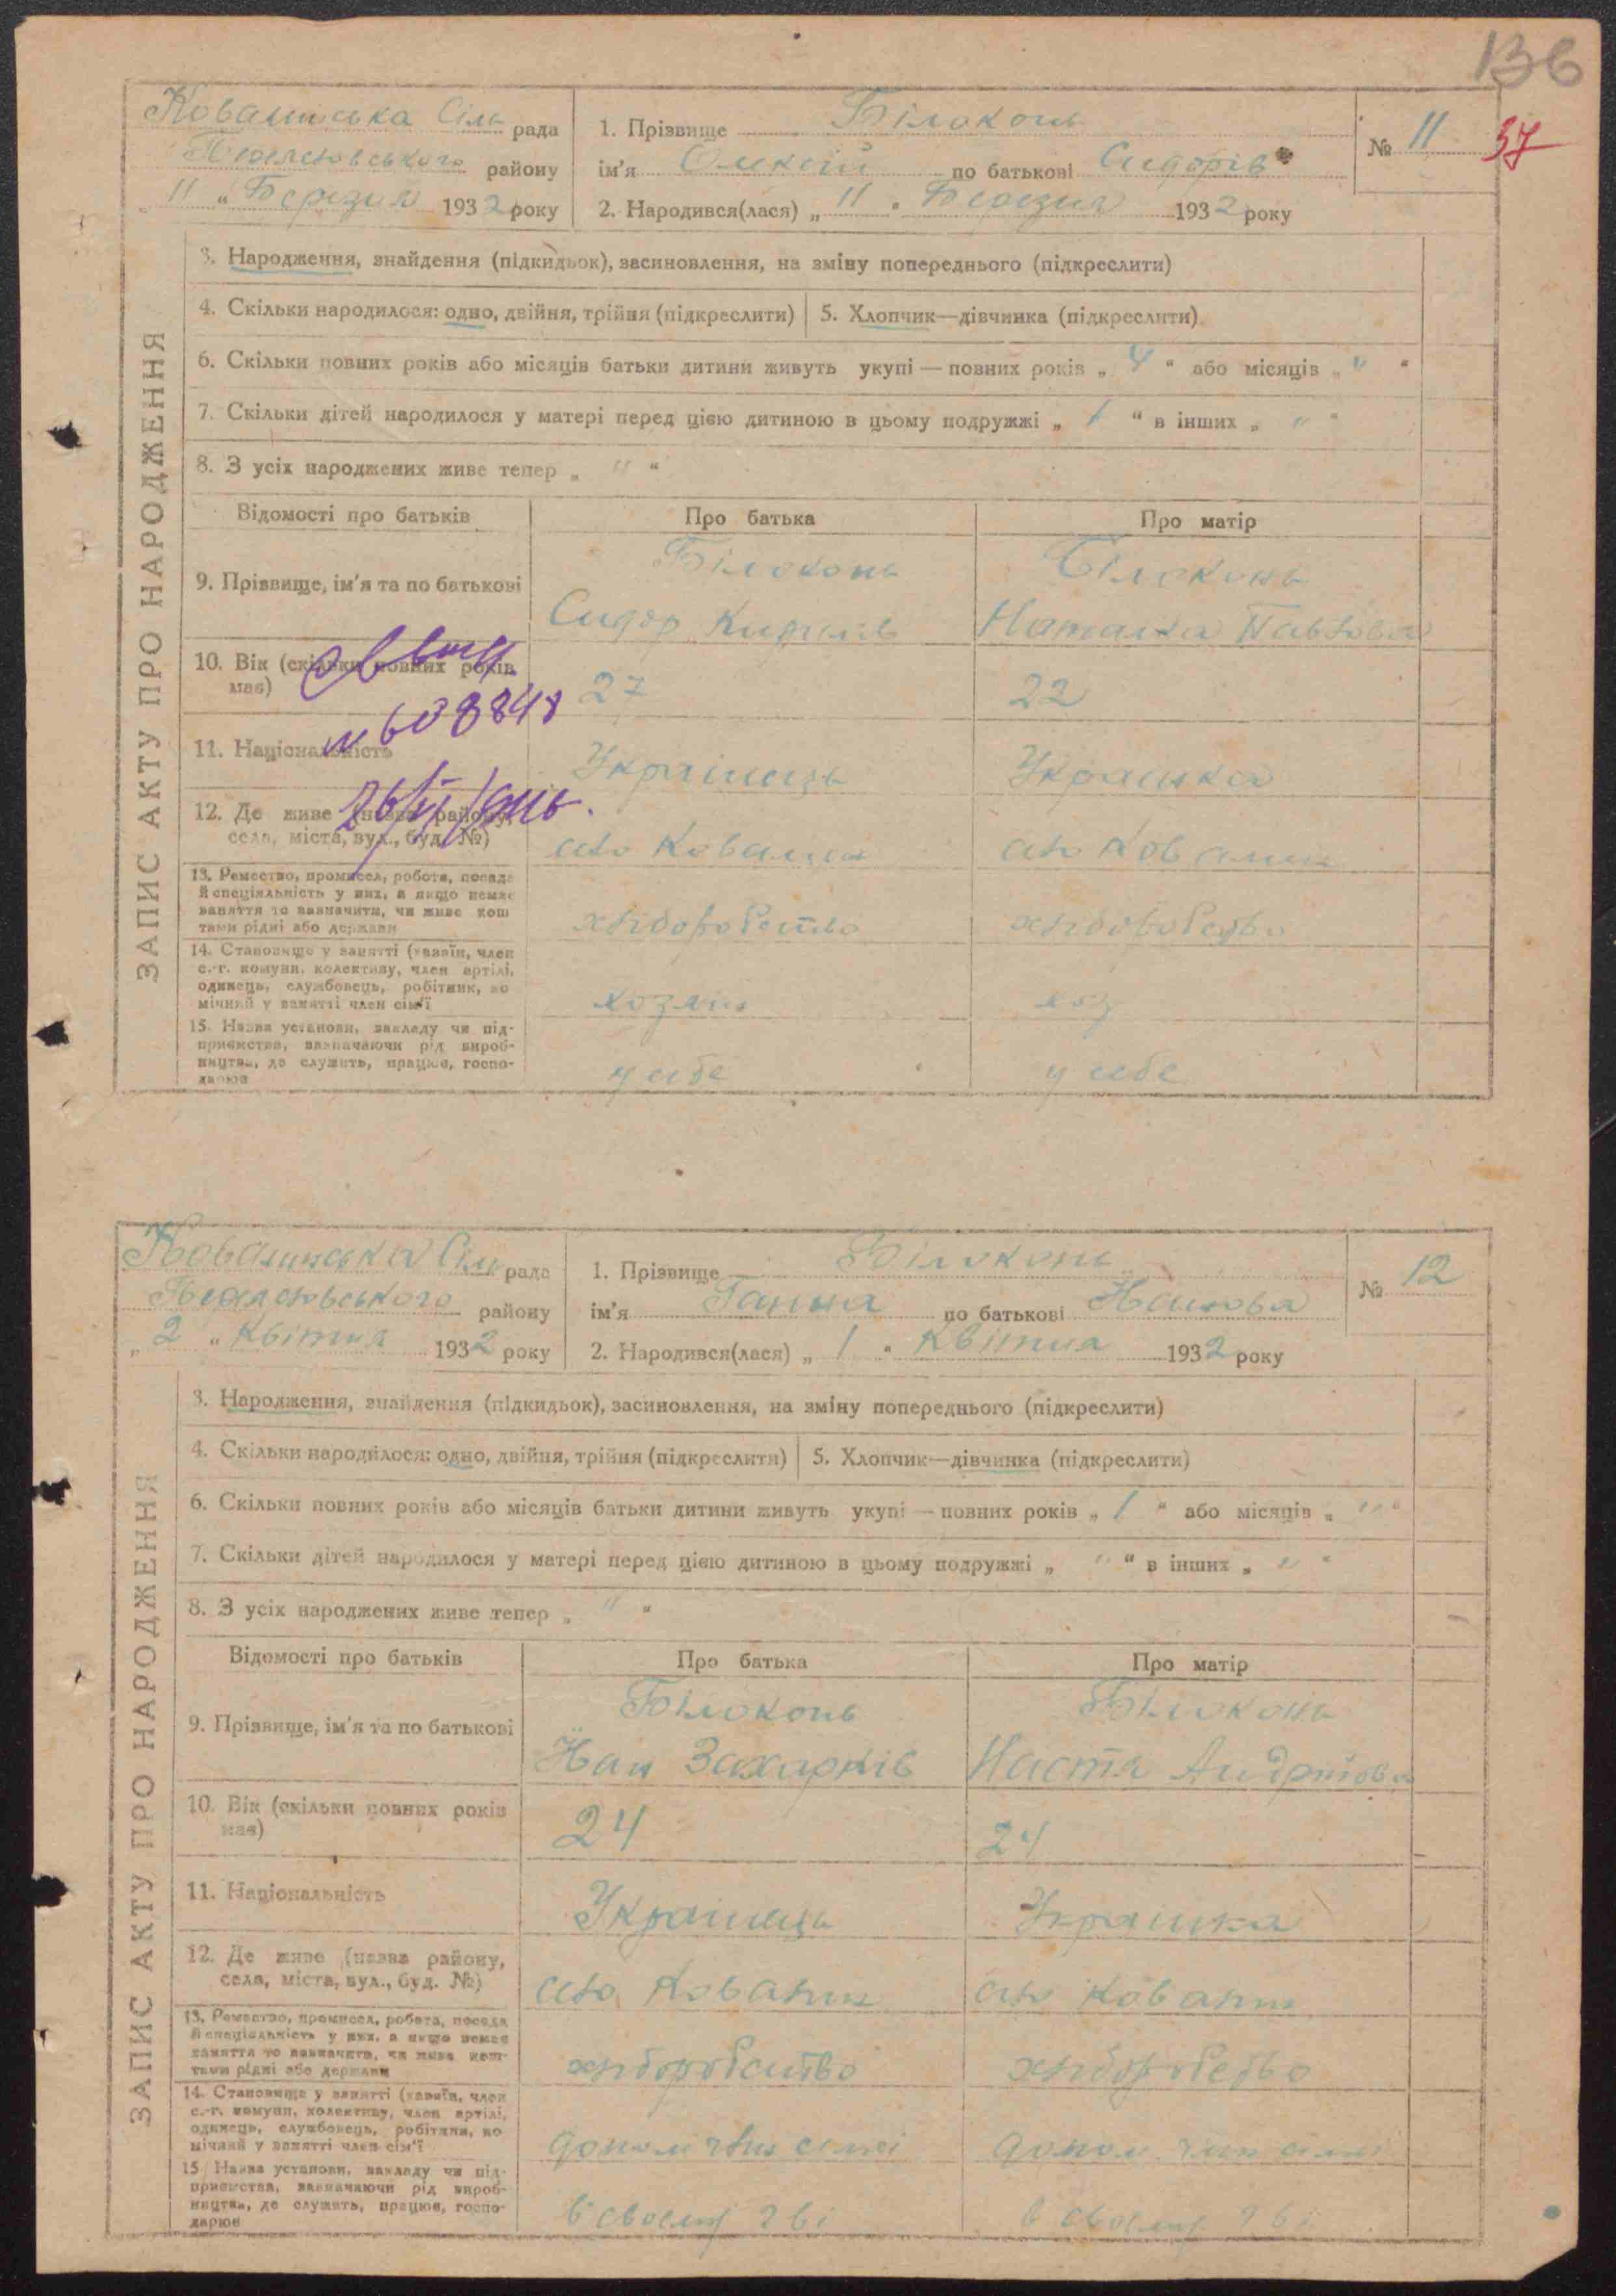 136
Ковалинська Сіль рада
району
11 " Березня 1932 року
1. Прізвище Білоконь
ім'я Олексій по батькові Сидорів
2. Народився(лася) „ 11 " Березня 1932 року
№ 11 37
ЗАПИС АКТУ ПРО НАРОДЖЕННЯ
3. Народження, знайдення (підкидьок), засиновлення, на зміну попереднього (підкреслити)
4. Скільки народилося: одно, двійня, трійня (підкреслити) 5. Хлопчик—дівчинка (підкреслити)
6. Скільки повних років або місяців батьки дитини живуть укупі — повних років „ 4 " або місяців „ " "
7. Скільки дітей народилося у матері перед цією дитиною в цьому подружжі „ 1 " в інших „ " "
8. З усіх народжених живе тепер „ " "
Відомості про батьків Про батька Про матір
9. Прізвище, ім'я та по батькові
Білоконь Білоконь
Сидор Кирилів Наталка Павлова
10. Вік (скільки повних років має) 27 22
№ 608848
11. Національність Українець Українка
12. Де живе (назва району, села, міста, вул., буд. №) село Ковалин село Ковалин
13. Ремество, промисел, робота, посада
й спеціяльність у них, а якщо немає
заняття то зазначити, чи живе кош
тами рідні або держави
хліборобство хліборобство
14. Становище у занятті (хазяїн, член
с.-г. комуни, колективу, член артілі,
одинець, службовець, робітник, по
мічний у занятті член сім'ї
хозяин хоз
15. Назва установи, закладу чи під-
приємства, зазначаючи рід вироб-
ництва, де служить, працює, госпо-
дарює
у себе у себе
Ковалинська Сіль рада
району
„ 2 " Квітня 1932 року
1. Прізвище Білоконь
ім'я Ганна по батькові
2. Народився(лася) „ 1 " Квітня 1932 року
№ 12
ЗАПИС АКТУ ПРО НАРОДЖЕННЯ
3. Народження, знайдення (підкидьок), засиновлення, на зміну попереднього (підкреслити)
4. Скільки народилося: одно, двійня, трійня (підкреслити) 5. Хлопчик—дівчинка (підкреслити)
6. Скільки повних років або місяців батьки дитини живуть укупі — повних років „ 1 " або місяців „ " "
7. Скільки дітей народилося у матері перед цією дитиною в цьому подружжі „ " " в інших „ " "
8. З усіх народжених живе тепер „ " "
Відомості про батьків Про батька Про матір
9. Прізвище, ім'я та по батькові
Білоконь Білоконь
Захарків Настя Андріїова
10. Вік (скільки повних років має) 24 24
11. Національність Українець Українка
12. Де живе (назва району, села, міста, вул., буд. №) село Ковалин село Ковалин
13. Ремество, промисел, робота, посада
й спеціяльність у них, а якщо немає
заняття то зазначити, чи живе кош-
тами рідні або держави
хліборобство хліборобство
14. Становище у занятті (хазяїн, член
с.-г. комуни, колективу, член артілі,
одинець, службовець, робітник, по
мічний у занятті член сім'ї
допом член семї допом. член семї
15. Назва установи, закладу чи під-
приємства, зазначаючи рід вироб-
ництва, де служить, працює, госпо-
дарює
в своему в своему